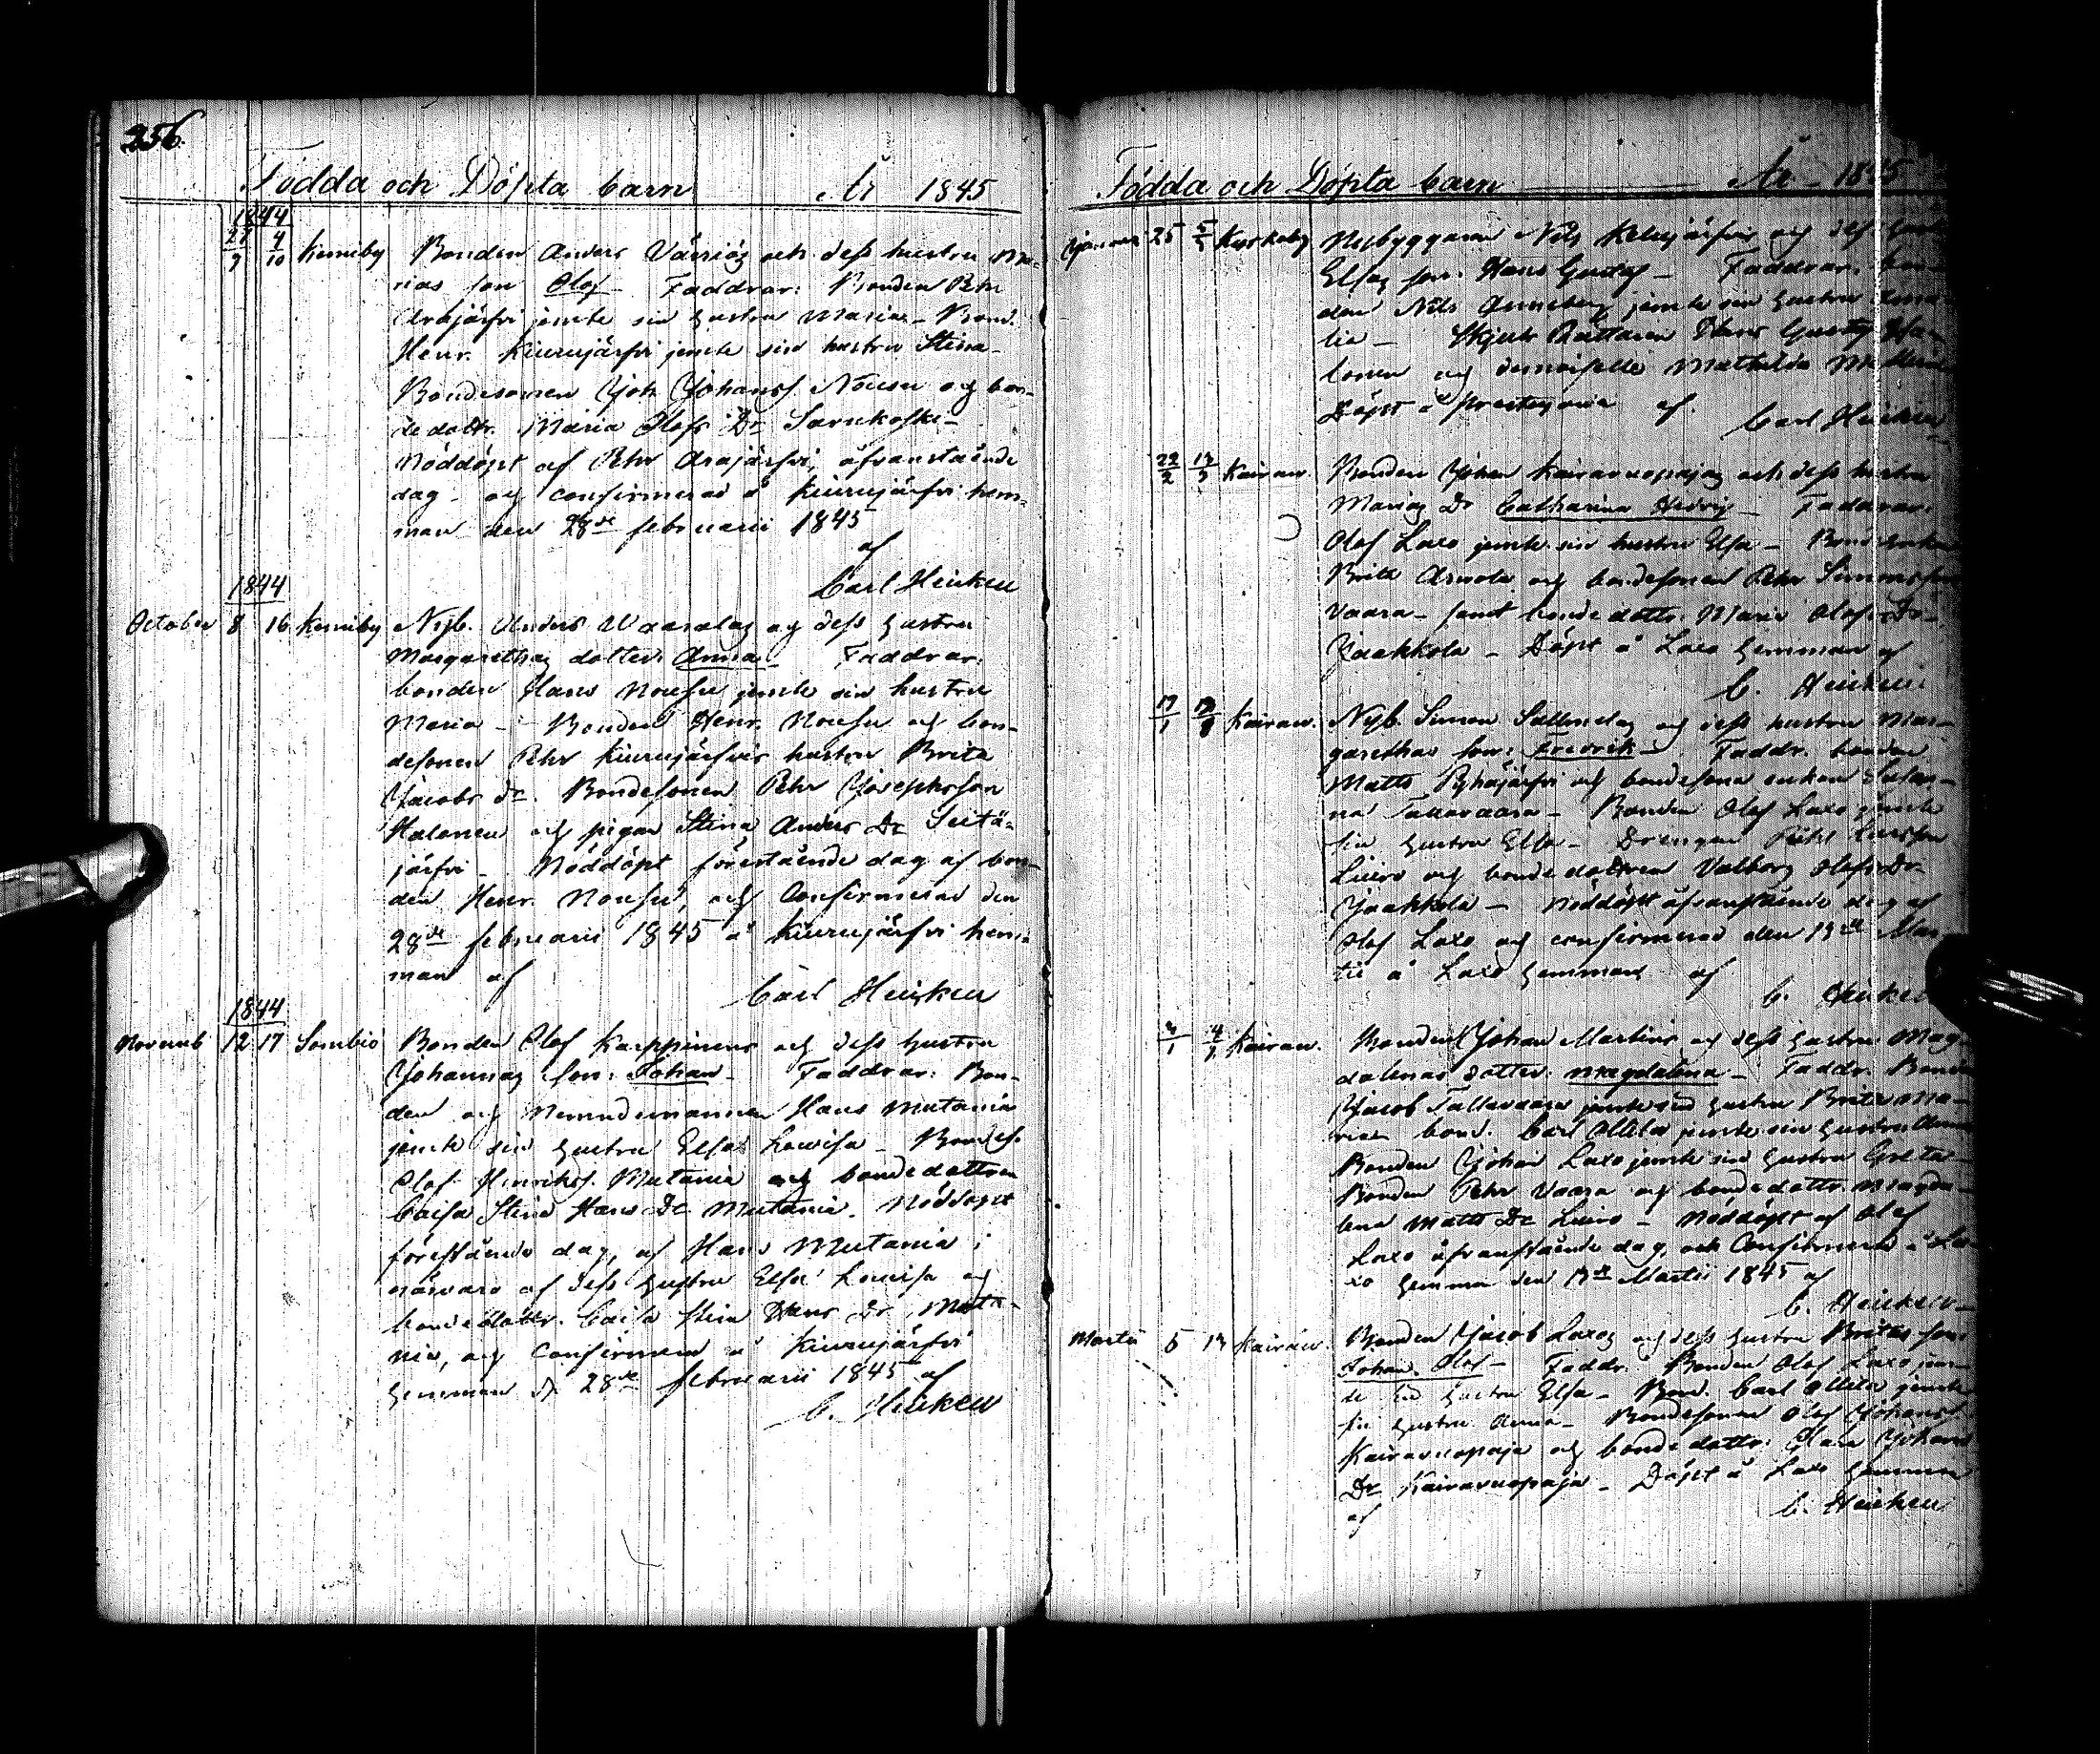 256.
Födda och Döpta barn År 1845
1844
27/9 4/10 Kemiby Bonden Anders Värriöz och dess hustru Ma-
rias son Olof - Faddrar: Bonden Pehr
Arajärfvi jemte sin hustru Maria - Bond.
Henr. Kiurujärfvi jemte sin hustru Stina -
Bondesonen Joh. Johanss. Nousu och bon-
dedottr. Maria Olofs Dr Sarukoski -
Nöddöpt af Pehr Arajärfvi, ofvanstående
dag - och confirmerad å Kiurujärfvi hem-
man den 28de februarii 1845
af
Carl Heiken
1844
October 8 16 Kemiby Nyb. Anders Waaralas och dess hustru
Margarethas dotter: Anna - Faddrar:
bonden Hans Nousu jemte sin hustru
Maria - Bonden Henr. Nousu och bon-
desonen Pehr Kiurujärfvis hustru Brita
Jacobs dr. Bondesonen Pehr Josephsson
Halonen och pigan Stina Anders Dr Seitä-
järfvi - Nöddöpt förestående dag af bon-
den Henr. Nousu, och Confirmerad den
28de februarii 1845 å Kiurujärfvi hem-
man af
Carl Heiken
1844
Novemb 12 17 Sombio Bonden Olof Karppinens och dess hustru
Johannas son: Johan - Faddrar: Bon-
den och Nemndemannen Hans Mutania
jemte sin hustru Elsa Lowisa - Bondes.
Olof Henrikss. Mutania och bondedottren
Caisa Stina Hans Dr Mutania. Nöddöpt
förestående dag, af Hans Mutania i
närvaro af dess hustru Elsa Lowisa och
bondedottr. Caisa Stina Hans Dr Muta-
nia, och Confirmerad å Kiurujärfvi
hemman d. 28de februarii 1845 af
C. Heiken
Födda och Döpta barn År 1845
Januari 25 Nils och dess
son: Hans Gustaf - Faddrar:
den Nils jemte sin hustru
Hans Gustaf
och demoiselle Mathilda
Döpt å af
Carl Heiken
22/2 13/3 Kairaw. Bonden Johan Kairavuopajas och dess hustru
Marias Dr Catharina Hedvig - Faddrar:
Olof Laxo jemte sin hustru Elsa -
Brita och bondesonen Pehr
Vaara - samt bondedottr. Maria Olofs Dr
Jaakkola - Döpt å Laxo hemman af
C. Heiken
17/1 Kairaw. Nyb. Simon och dess hustru Mar-
garethas son: Fredrik - Faddr. bonden
Matts Pyhäjärfvi och bondesons enkan Susan-
na Tallavaara - Bonden Olof Laxo jemte
sin hustru Elsa - Drengen
Luiro och bondedottren Valborg Olofs Dr
Jaakkola - Nöddöpt ofvanstående dag af
Olof Laxo och confirmerad den 13de Mar-
tii å Laxo hemman af
C. Heiken
Kairaw. Bonden Johan Martins och dess hustru Mag-
dalenas dotter: Magdalena - Faddr. Bonden
Jacob Tallavaara jemte sin hustru Brita Ma-
ria - bond. Carl Ollila jemte sin hustru Anna
Bonden Johan Laxo jemte sin hustru Greta -
Bonden Pehr Vaara och bondedottr. Magda-
lena Matts Dr Luiro - Nöddöpt af Olof
Laxo ofvanstående dag, och Confirmerad å La-
xo hemman den 13de Martii 1845 af
C. Heiken
Martii 5 13 Kairaw. Bonden Jacob Laxos och dess hustru Britas son:
Johan Olof - Faddr. Bonden Olof Laxo jem-
te sin hustru Elsa - Bond. Carl Ollila jemte
sin hustru Anna - Bondesonen Olof Johanss.
Kairavuopaja och bondedottr. Johans
Dr Kairavuopaja - Döpt å Laxo hemman
af C. Heiken